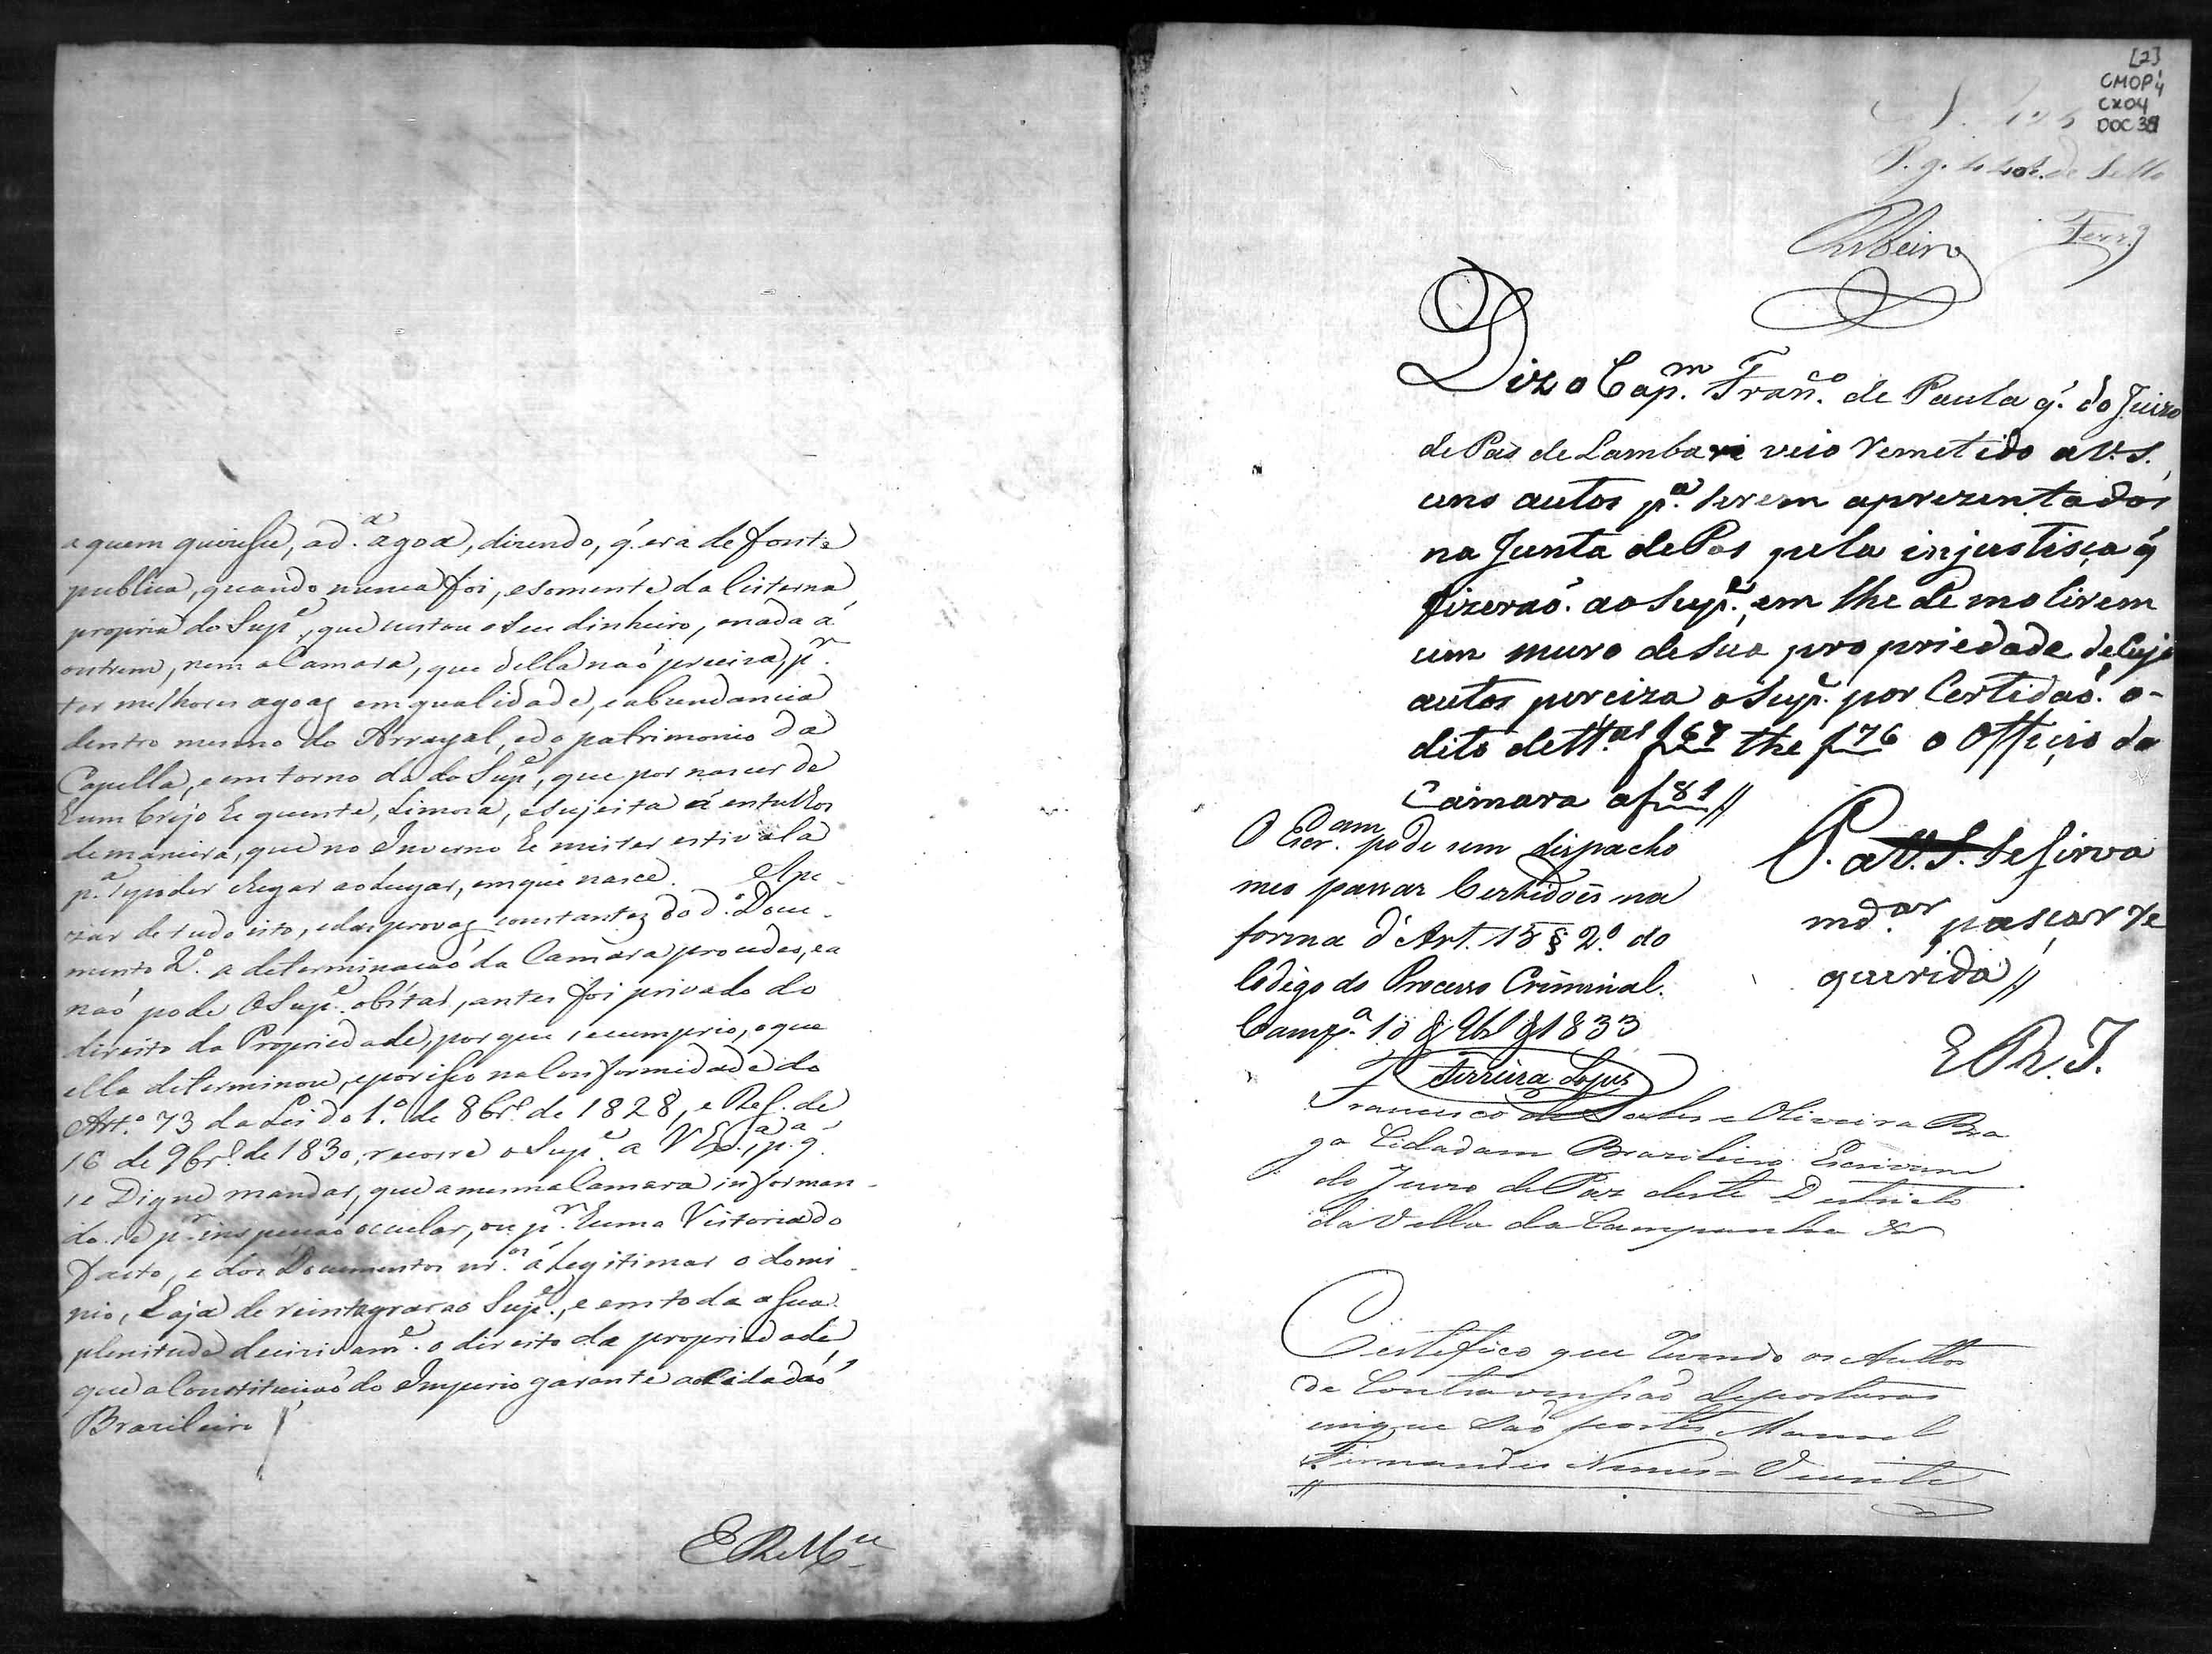 a quem quizesse, a d.ª agoa, dizendo, q̃. era de fonte
publica, quando nunca foi, e somente da Cisterna
propria do Sup.e, que custou o seu dinheiro, e nada a
outrem, nem a Camara, que della naõ preciza, p.r
ter melhores agoas em qualidade, e abundancia
dentro mesmo do Arrayal, e do patrimonio da
Capella, e em torno da do Sup.e, que por nascer de
hum brejo he quente, Limoza, e sujeita á entulhos
de maneira, que no Inverno he mister estivala
p.a se poder chegar ao Lugar, em que nasce. Ape-
zar de tudo isto, e das provas constantes do d.º Docu-
mento 2.º a determinacaõ da Camara procedeo, e a
naõ pode o Sup.e obstar, antes foi privado do
direito da Propriedade, por que se cumprio, o que
ella determinou, e por isso na Conformidade do
Art.º 73 da Lei do 1.º de 8br.º de 1828, e Res. de
16 de 9br.º de 1830, recorre o Sup.e a V Ex.ª, p.ª q̃.
se Digne mandar, que a mesma Camara informan-
do-se p.r inspecaõ occular, ou p.r huma Vistoria do
facto, e dos Documentos
á Legitimar o domi-
nio, haja de reintegrar ao Sup.e, e em toda a sua
plenitude decizivam.e o direito da propriedade,
que a Constituicaõ do Imperio garante ao Cidadaõ
Brazileiro
E R M.ce
[2]
CMOP 4
CX 04
DOC 38
de Sello
Ribeiro Ferr.ª
Diz o Cap.m Fran.co de Paula q̃. do Juizo
de Pas de Lambari veio remetido a V. S.
uns autos p.a serem aprezentados
na Junta de Pas pela injustisça q̃
fizeraõ. ao Sup.e, em lhe demolirem
um muro de sua propriedade de Cujo
autos perciza o Sup.e por Certidaõ. o-
dito de tt.as f 67 the f 76 o Officio da
Camara a f 81 //
O Escr.am pode sem dispacho
meo passar Certidoẽs na
forma d'Art. 15 § 2.º do
Codigo do Processo Criminal.
Camp.a 10 de 9br de 1833
Ferreira Lopes
P. a V. S. Se sirva
md.ar pasçar re
querida //
E R. J.
Francisco de Salles e Oliveira Bra
ga Cidadam Brazileiro Escrivam
do Juizo de Paz deste Destricto
da Villa da Campanha &a
Certefico que Vendo os Auttos
de Contravensaõ de posturas
em que saõ partes Manoel
Fernandes Nunes = Vicente